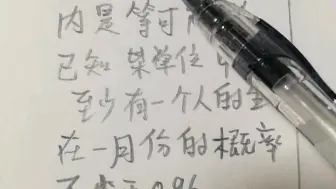 内是等可
已知某单位
至少有一个人的生
在一月份的概率
不小于0.96